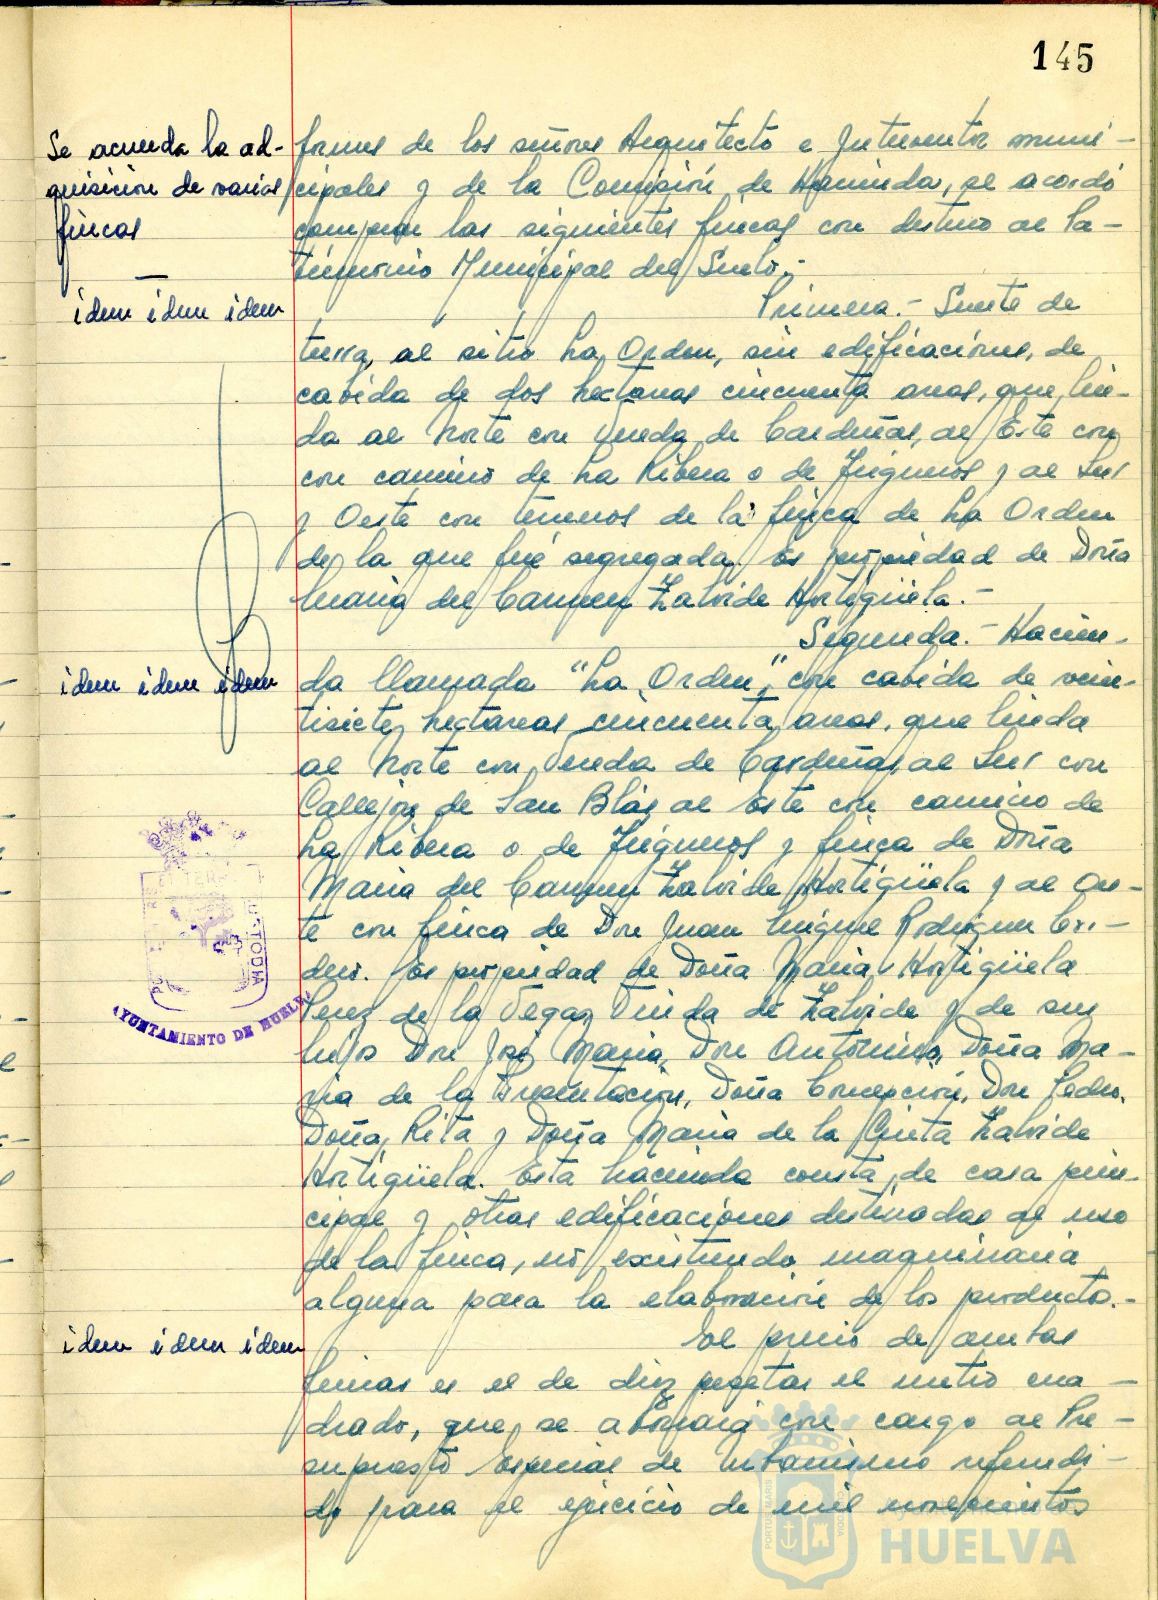 145
Se acuerda la ad-
quisición de varias
fincas
formes de los señores Arquitecto e Interventor muni-
cipales y de la Comisión de Hacienda, se acordó
comprar las siguientes fincas con destino al Pa-
trimonio Municipal del Suelo.-
idem idem idem
Primera.- Suerte de
tierra, al sitio La Orden, sin edificaciones, de
cabida de dos hectáreas cincuenta areas, que lin-
da al Norte con Vereda de Cardeñas, al Este con
con camino de La Ribera o de Trigueros y al Sur
y Oeste con terrenos de la finca de La Orden
de la que fué segregada. Es propiedad de Doña
Maria del Carmen Zalvide Hortigüela.-
Segunda.- Hacien-
idem idem idem
da llamada "La Orden", con cabida de vein-
tisiete hectareas cincuenta areas, que linda
al Norte con Vereda de Cardeñas, al Sur con
Callejón de San Blás, al Este con camino de
La Ribera o de Trigueros y finca de Doña
Maria del Carmen Zalvide Hortigüela y al Oes-
te con finca de Don Juan Miguel Rodriguez
dero. Es propiedad de Doña Maria Hortigüela
Perez de la Vega, Viuda de Zalvide y de sus
hijos Don José Maria, Don Antonino, Doña Ma-
ria de la Presentación, Doña Concepción, Don Pedro,
Doña Rita y Doña Maria de la Cinta Zalvide
Hortigüela. Esta hacienda consta de casa prin-
cipal y otras edificaciones destinadas al uso
de la finca, no existiendo maquinaria
alguna para la elaboración de los productos.-
idem idem idem
El precio de ambas
fincas es el de diez pesetas el metro cua-
drado, que se abonará con cargo al Pre-
supuesto Especial de Urbanismo refundi-
do para el ejercicio de mil novecientos
AYUNTAMIENTO DE HUELVA
PORTUS MARIS
CUSTODIA
HUELVA